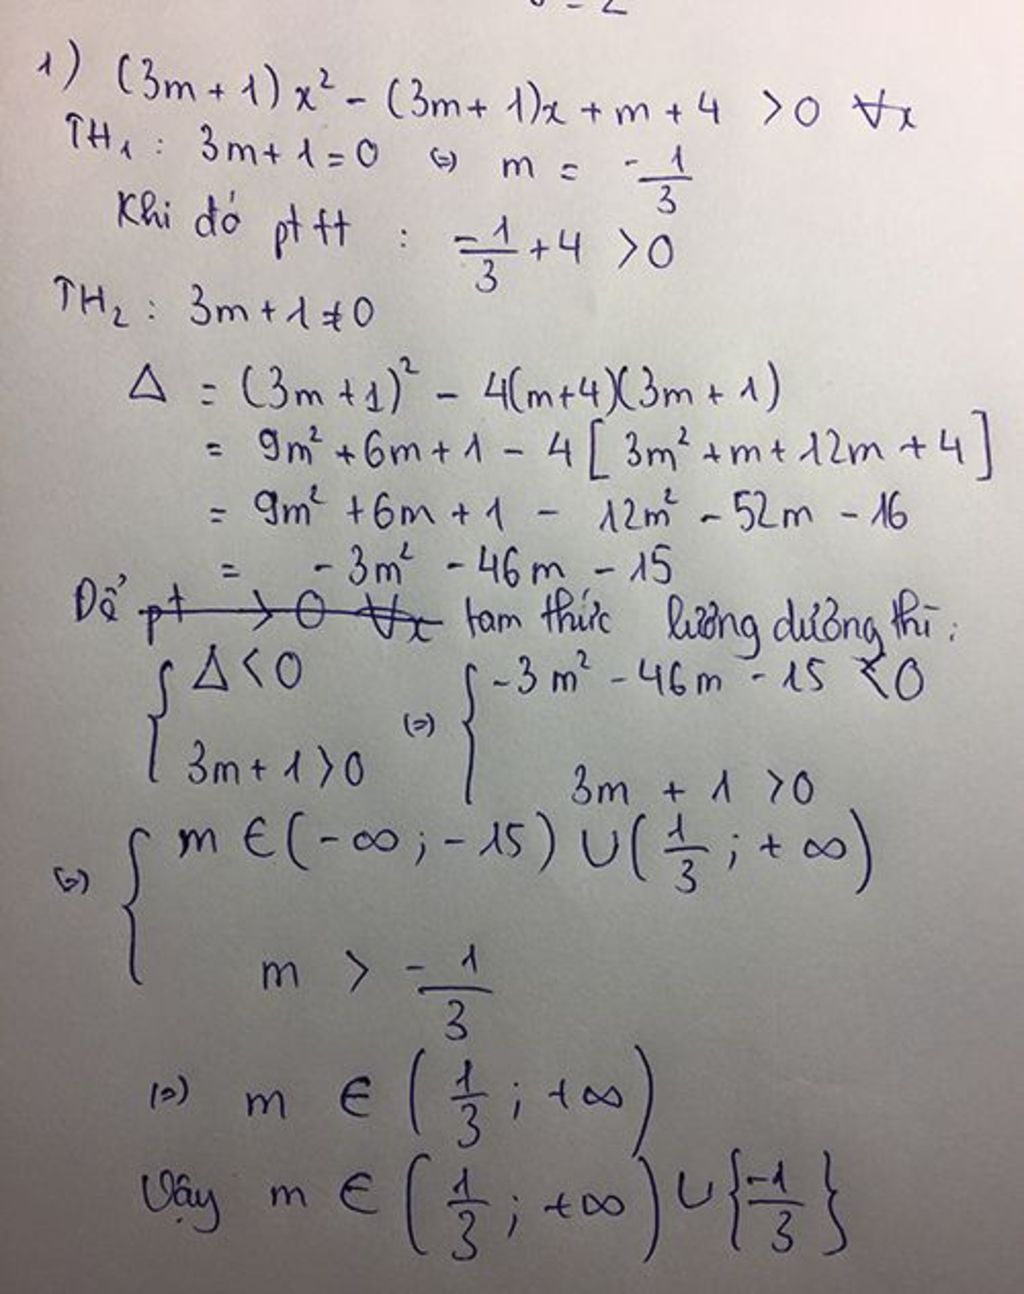 1) (3m + 1) x² - (3m + 1)x + m + 4 > 0 ∀x
TH₁ : 3m + 1 = 0 (=) m = -1/3
Khi đó pt tt : -1/3 + 4 > 0
TH₂ : 3m + 1 ≠ 0
Δ = (3m + 1)² - 4(m+4)(3m + 1)
= 9m² + 6m + 1 - 4 [ 3m² + m + 12m + 4 ]
= 9m² + 6m + 1 - 12m² - 52m - 16
= - 3m² - 46m - 15
Để pt > 0 ∀x tam thức luông dương thì :
{ Δ < 0 (=) { -3m² - 46m - 15 < 0
3m + 1 > 0 3m + 1 > 0
(=) { m ∈ (-∞ ; -15) ∪ (1/3 ; + ∞)
m > -1/3
(=) m ∈ (1/3 ; +∞)
Vậy m ∈ (1/3 ; +∞) ∪ {-1/3}